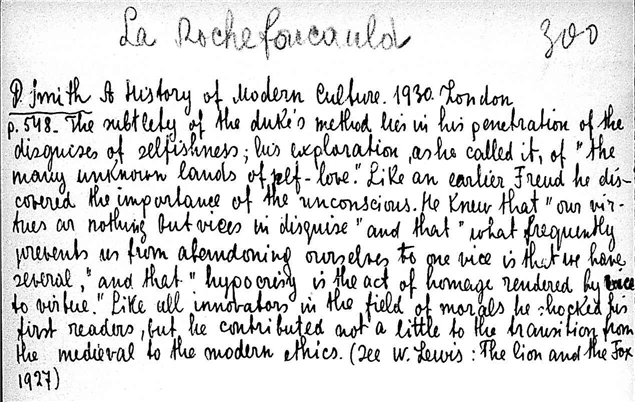 La Rochefoucauld 300
P. Smith A History of Modern Culture. 1930. London
p. 548. The subtlety of the duke's method lies in his penetration of the
disguises of selfishness; his exploration, as he called it, of "the
many unknown lands of self-love." Like an earlier Freud he dis-
covered the importance of the unconscious. He knew that "our vir-
tues are nothing but vices in disguise" and that "what frequently
prevents us from abandoning ourselves to one vice is that we have
several," and that "hypocrisy is the act of homage rendered by vice
to virtue." Like all innovators in the field of morals he shocked his
first readers, but he contributed not a little to the transition from
the medieval to the modern ethics. (See W. Lewis: The Lion and the Fox
1927)